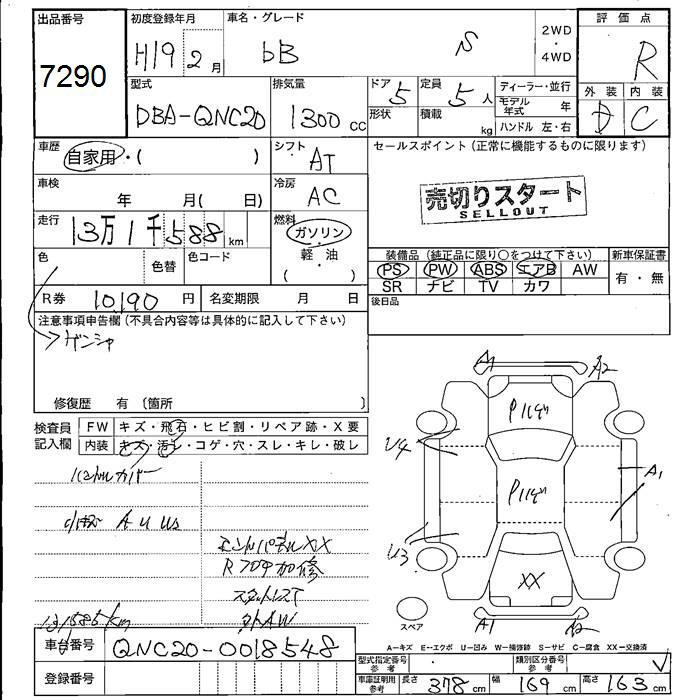 出品番号 初度登録年月 車名・グレード 2WD 評価点
7290 H19 2月 bB S ・ R
4WD 外装 内装
型式 排気量 ドア 5 定員 5人 ティーラー・並行 D C
DBA-QNC20 1300cc 形状 積載 kg モデル年式 年
ハンドル 左・右
車歴 自家用・( ) シフト AT セールスポイント (正常に機能するものに限ります)
車検 年 月( 日) 冷房 AC 売切りスタート
SELLOUT
走行 13万1千588km 燃料 ガソリン
・
軽・油
( )
色 色替 色コード 装備品 (純正品に限り○をつけて下さい) 新車保証書
PS PW ABS エアB AW 有・無
SR ナビ TV カワ
R券 10190円 名変期限 月 日 後日品
注意事項申告欄 (不具合内容等は具体的に記入して下さい)
ゲンシャ
修復歴 有 〔箇所 〕
検査員 FW キズ・飛石・ヒビ割・リペア跡・X要
記入欄 内装 キズ・汚レ・コゲ・穴・スレ・キレ・破レ
ハンドルカバー
A U US
エンドパネルXX
R フロア加修
スタッドレスT
131585km
A1 A2
U4 A1
U3
XX
A1 A2
スペア
A=キズ E=エクボ U=凹み W=補修跡 S=サビ C=腐食 XX=交換済
車台番号 QNC20-0018548
登録番号
型式指定番号 参考 類別区分番号 参考
車庫証明用 参考 長さ 378cm 幅 169cm 高さ 163cm